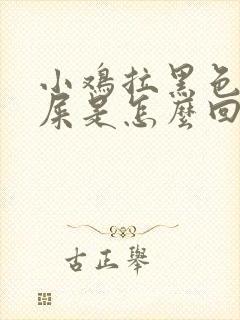 小鸡拉黑色
屎是怎麼回
古正舉